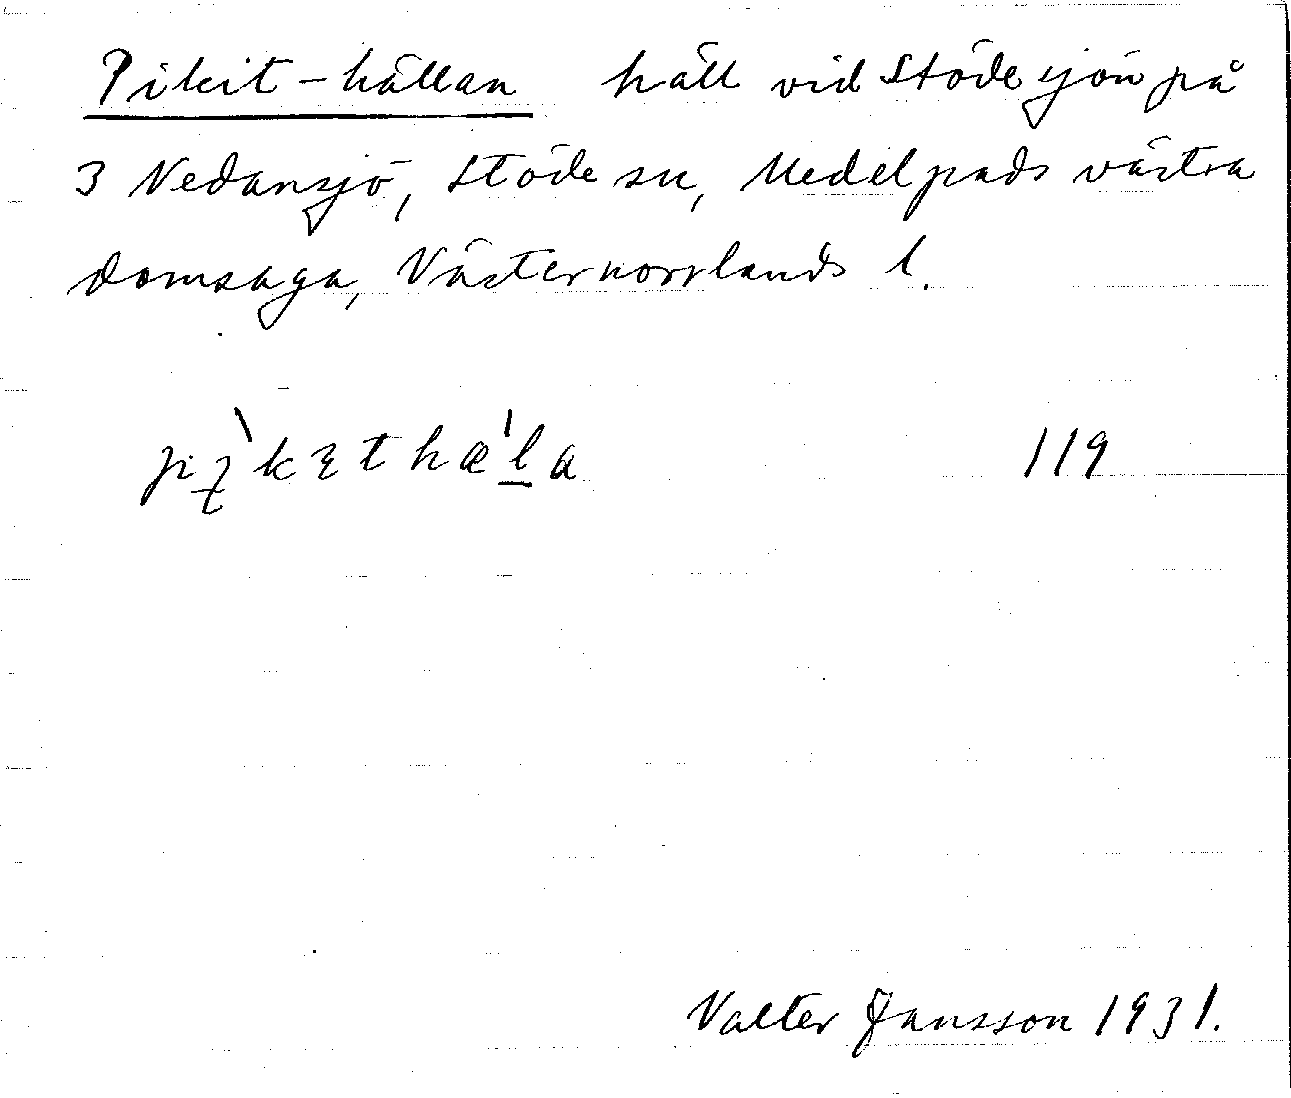 Pikit-hällan häll vid Stödesjön på
3 Nedansjö, Stöde sn, Medelpads västra
domsaga, Västernorrlands l.
119
Valter Jansson 1931.